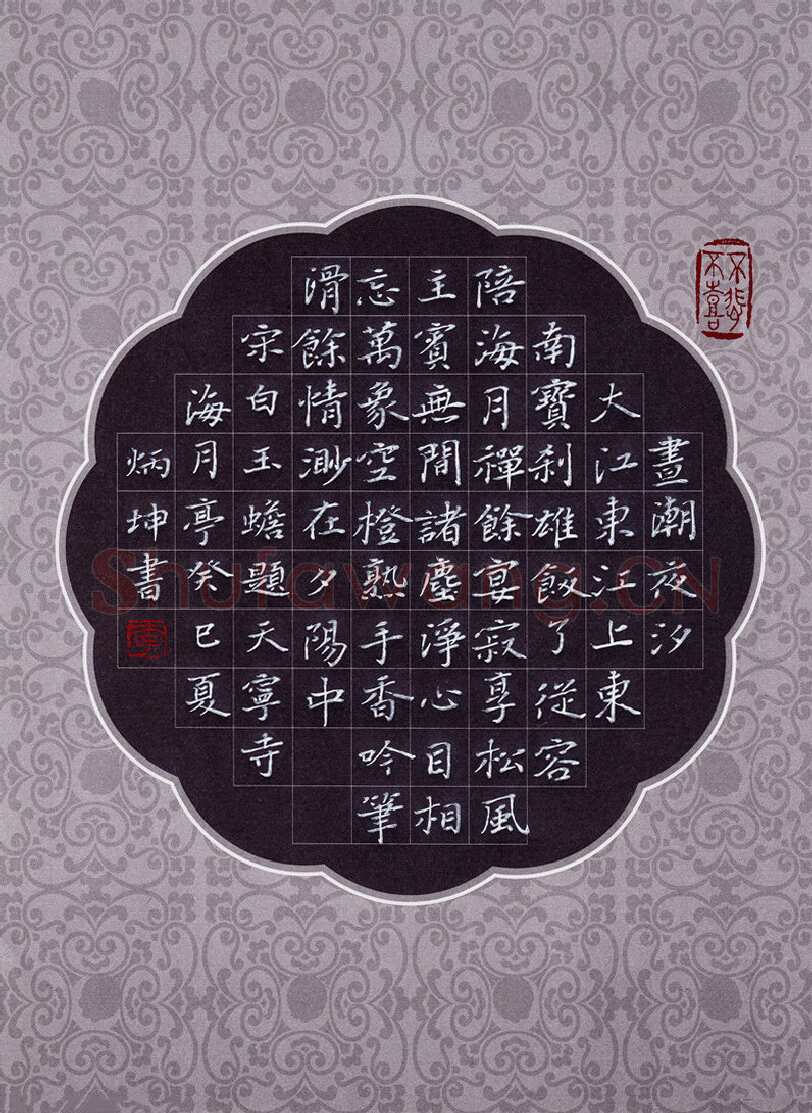 不悲
不喜
晝潮夜汐
大江東江上東
南寶刹雄飯了從容
陪海月禪餘宴寂享松風
主賓無間諸塵淨心目相
忘萬象空橙熟手香吟筆
滑餘情渺在夕陽中
宋白玉蟾題天寧寺
海月亭癸巳夏
炳坤書
Shufawang.CN